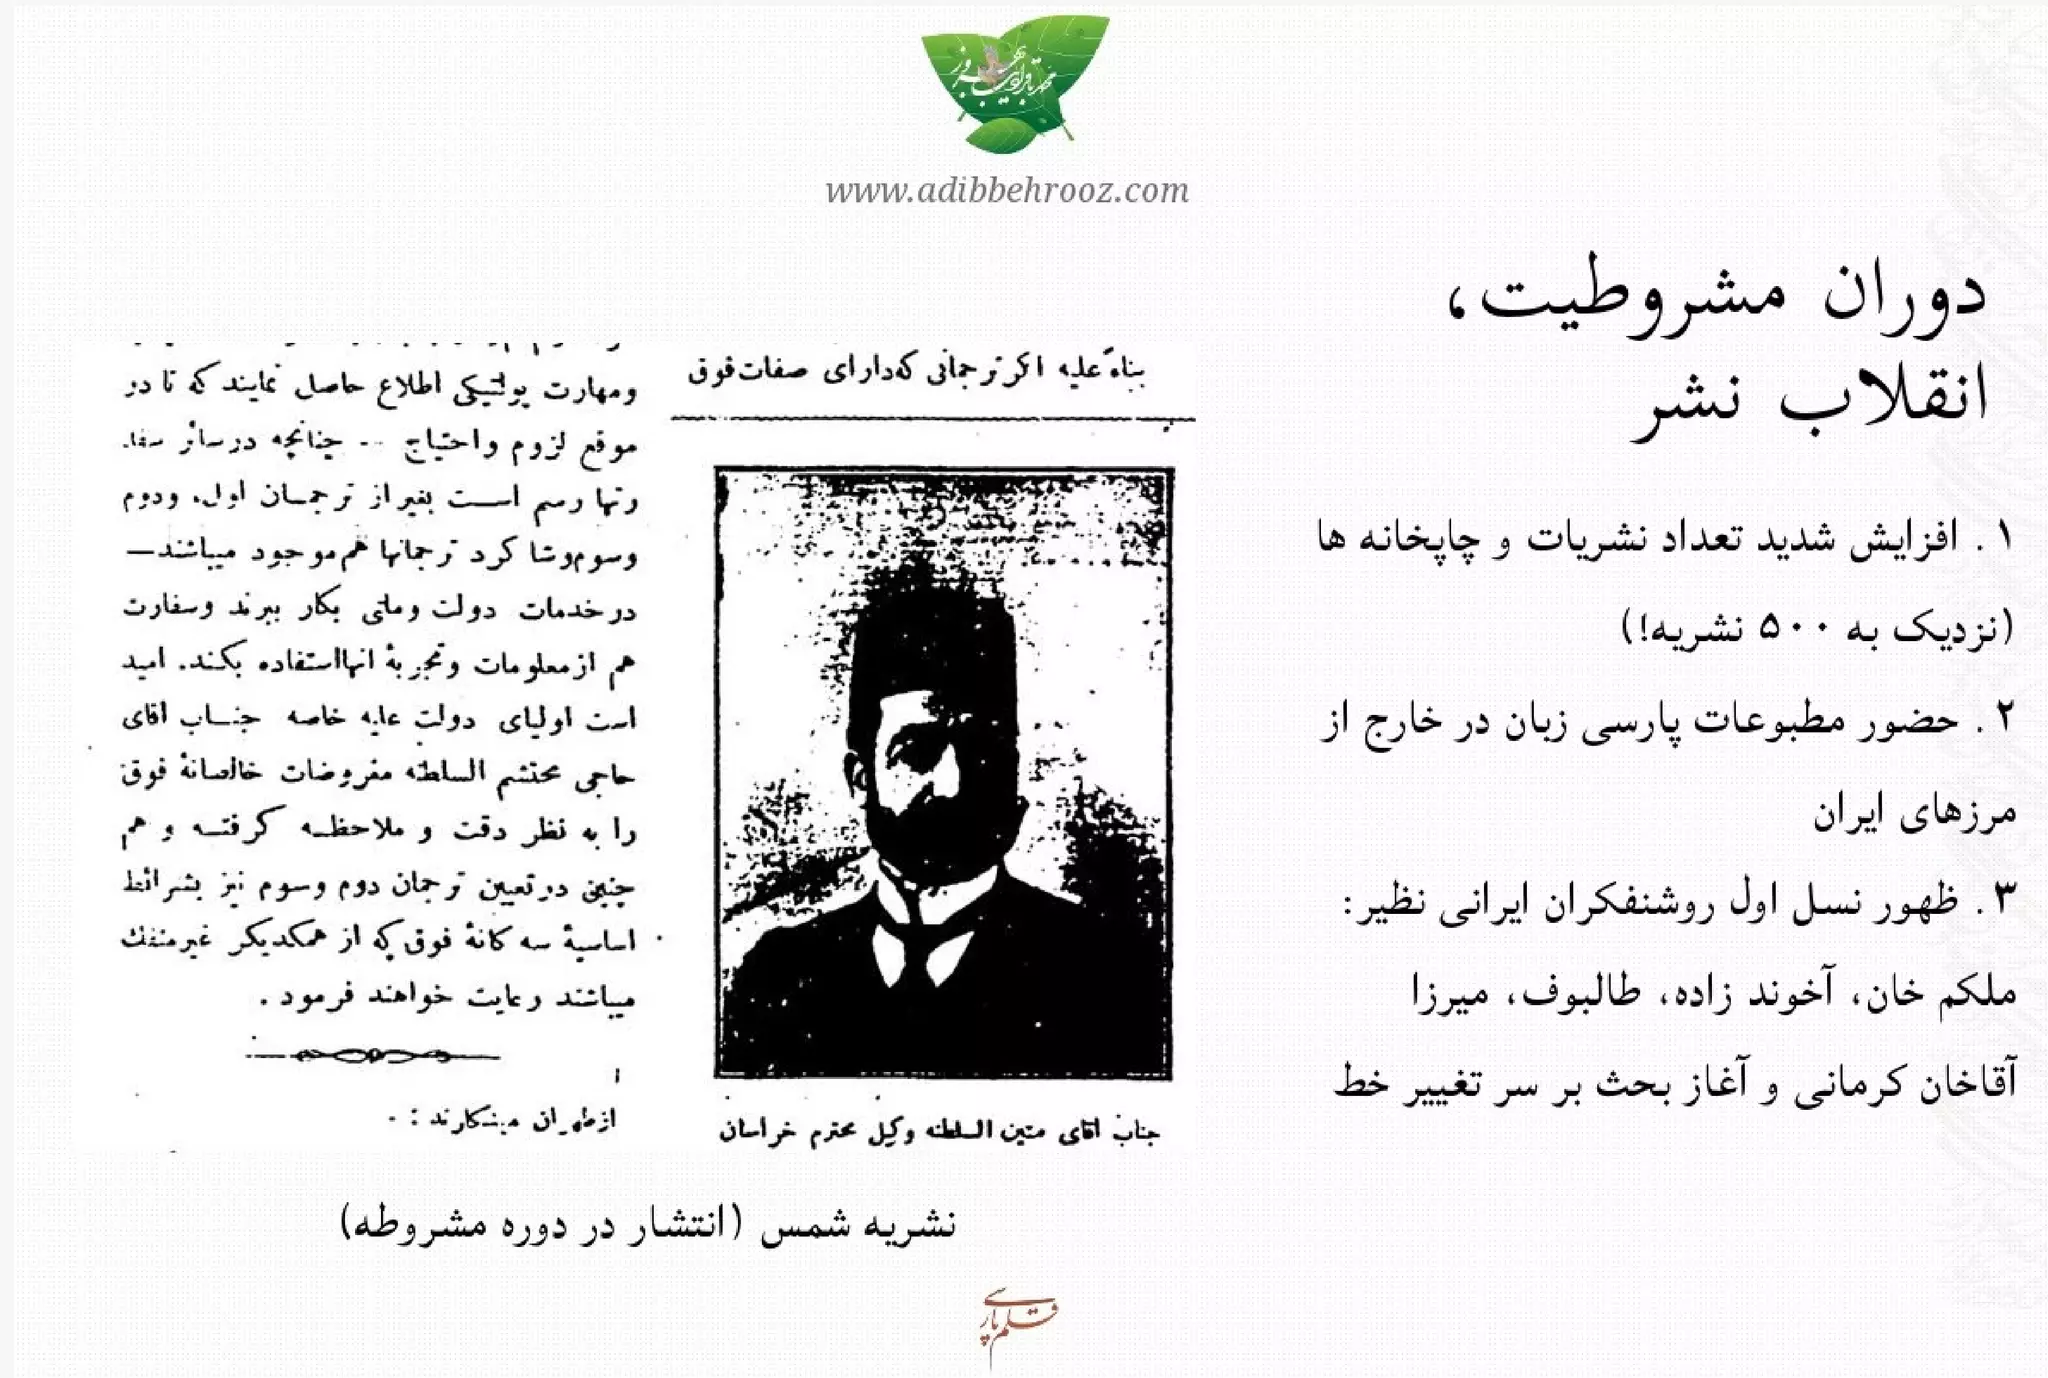 www.adibbehrooz.com
دوران مشروطیت،
انقلاب نشر
۱. افزایش شدید تعداد نشریات و چاپخانه ها
(نزدیک به ۵۰۰ نشریه!)
۲. حضور مطبوعات پارسی زبان در خارج از
مرزهای ایران
۳. ظهور نسل اول روشنفکران ایرانی نظیر:
ملکم خان، آخوند زاده، طالبوف، میرزا
آقاخان کرمانی و آغاز بحث بر سر تغییر خط
بناءً علیه اگر ترجمانی که دارای صفات فوق
جناب اقای متین السلطنه وکیل محترم خراسان
ومهارت پولتیکی اطلاع حاصل نمایند که تا در
موقع لزوم واحتیاج -- چنانچه در سائر سفا
رتها رسم است بغیر از ترجمان اول، ودوم
وسوم وشاکرد ترجمانها هم موجود میباشند —
در خدمات دولت وملتی بکار ببرند وسفارت
هم از معلومات وتجربهٔ انها استفاده بکند. امید
است اولیای دولت علیه خاصه جناب اقای
حاجی محتشم السلطنه معروضات خالصانهٔ فوق
را به نظر دقت و ملاحظه کرفته و هم
چنین در تعیین ترجمان دوم وسوم نیز بشرائط
اساسیهٔ سه کانهٔ فوق که از همکدیکر غیر منفک
میباشند رعایت خواهند فرمود.
ازطهران مینکارند:
نشریه شمس (انتشار در دوره مشروطه)
قلم پارسی